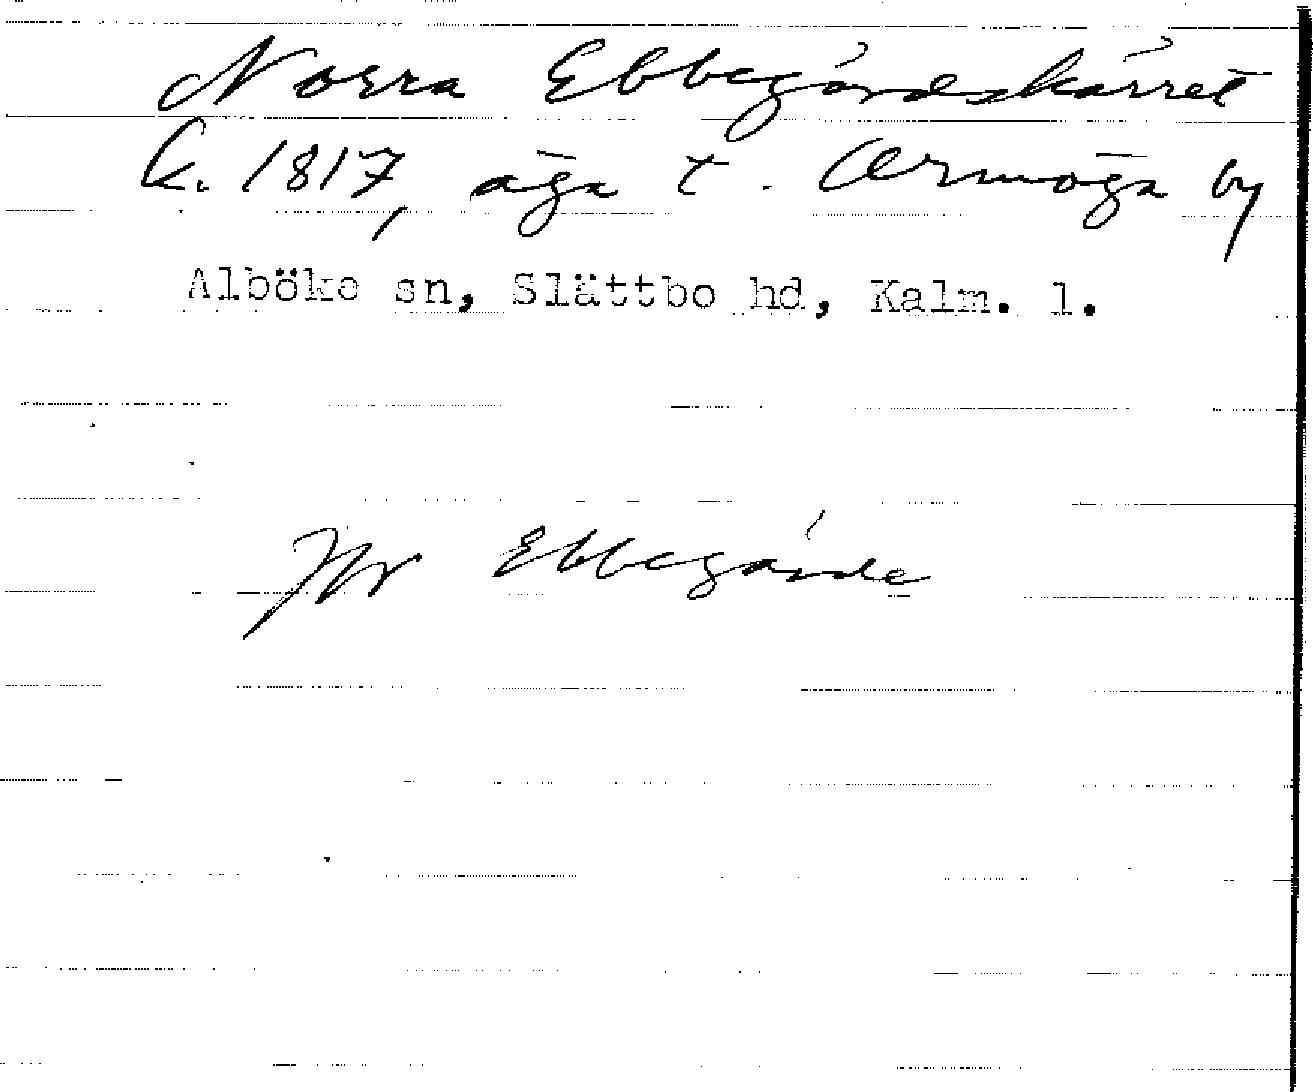 Norra Ebbegårdskärret
k. 1817, äga t. Armöga by
Alböke sn, Slättbo hd, Kalm. l.
Jfr Ebbegärde